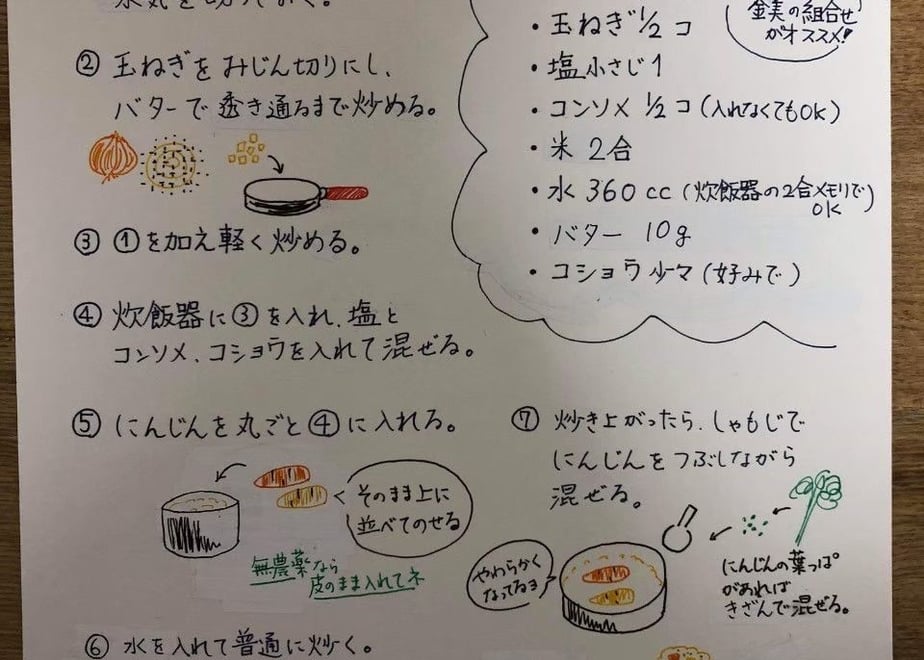 水気を切っておく。
② 玉ねぎをみじん切りにし、
バターで透き通るまで炒める。
③ ①を加え軽く炒める。
④ 炊飯器に③を入れ、塩と
コンソメ、コショウを入れて混ぜる。
⑤ にんじんを丸ごと④に入れる。
そのまま上に
並べてのせる
無農薬なら
皮のまま入れてネ
⑥ 水を入れて普通に炒く。
の組合せ
がオススメ!
・玉ねぎ 1/2 コ
・塩 小さじ1
・コンソメ 1/2 コ (入れなくてもOK)
・米 2合
・水 360cc (炊飯器の2合メモリで
OK)
・バター 10g
・コショウ 少々 (好みで)
⑦ 炒き上がったら、しゃもじで
にんじんをつぶしながら
混ぜる。
やわらかく
なってるヨ
にんじんの葉っぱ
があれば
きざんで混ぜる。